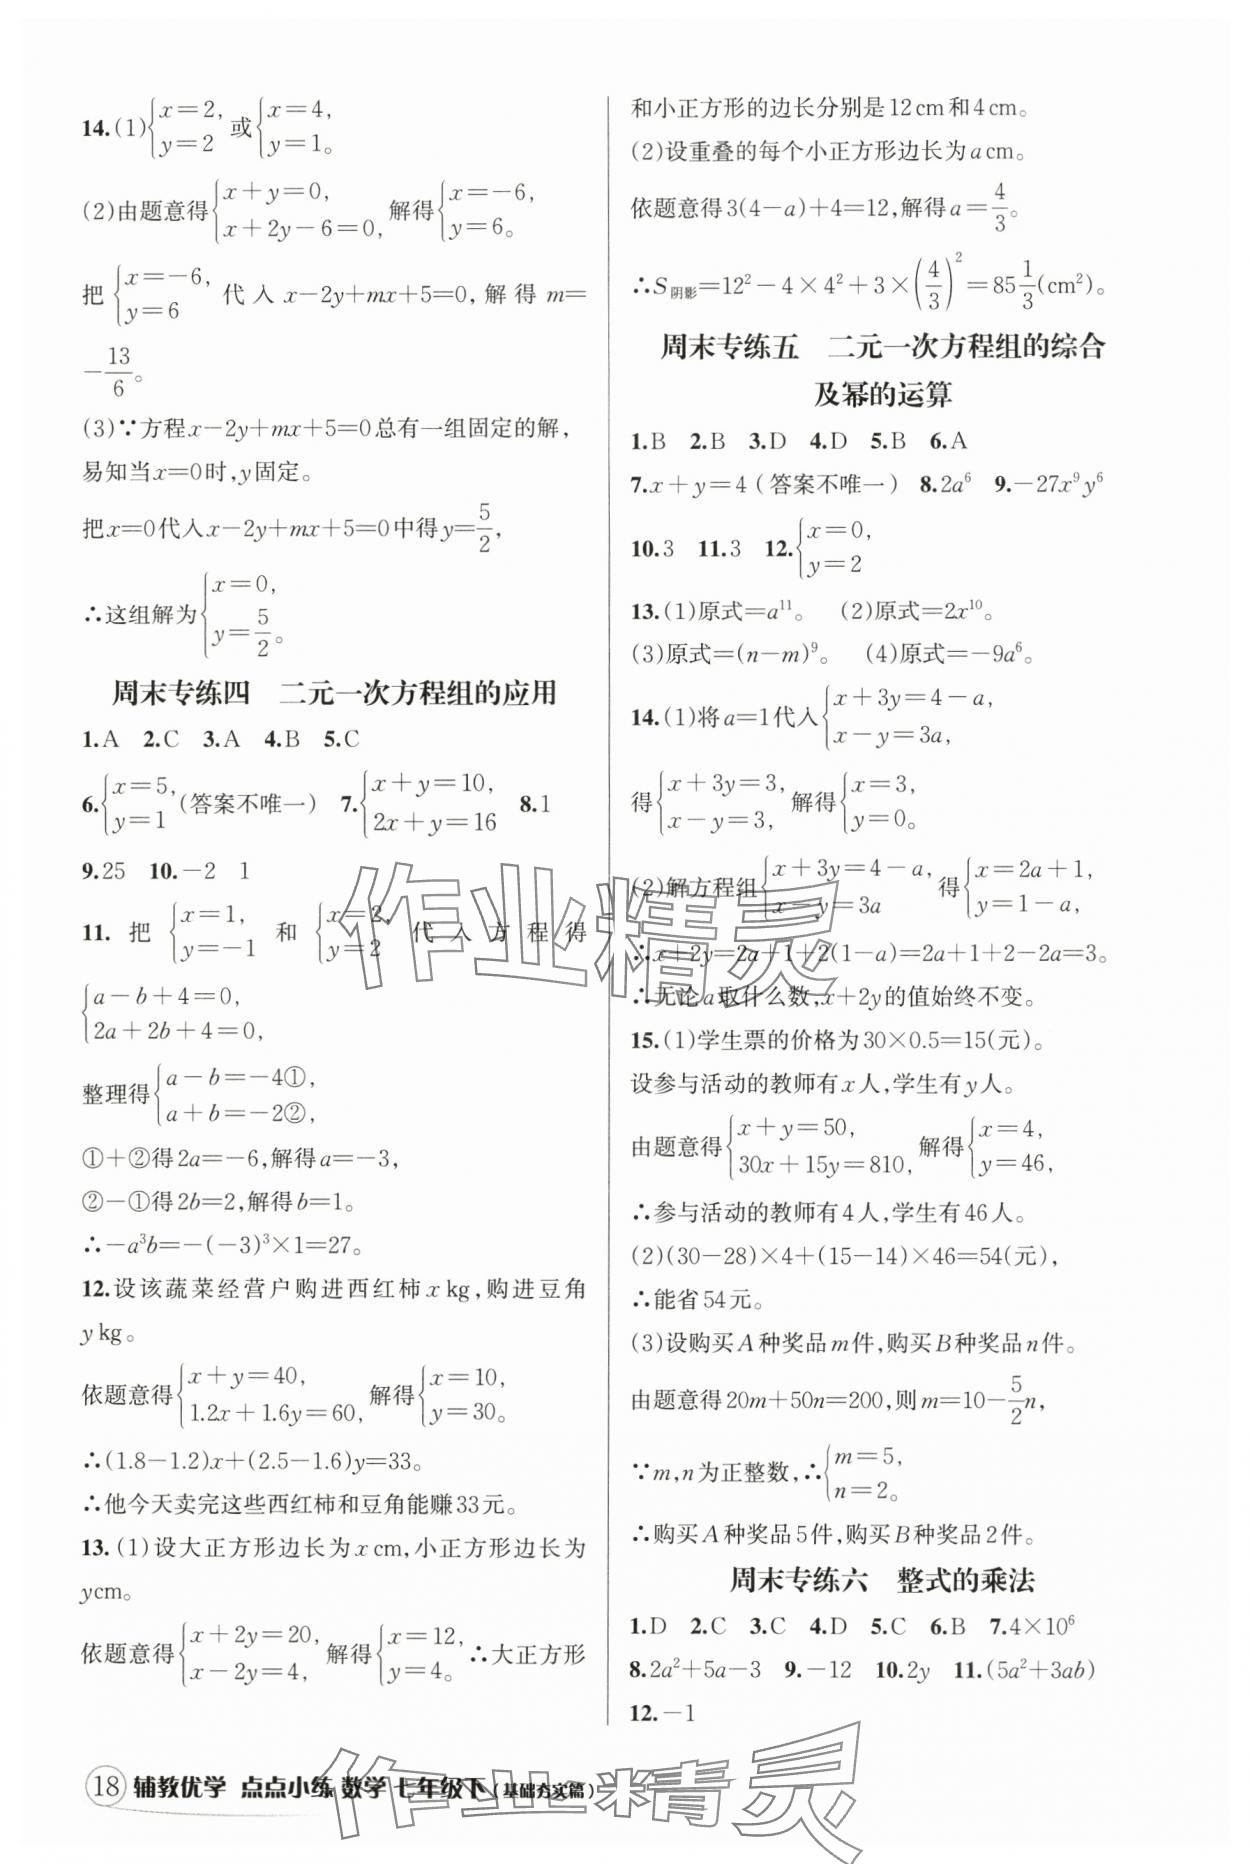 14.(1){x=2, y=2 或{x=4, y=1。
(2)由题意得{x+y=0, x+2y-6=0, 解得{x=-6, y=6。
把{x=-6, y=6 代入x-2y+mx+5=0,解得m=
-13/6。
(3)∵方程x-2y+mx+5=0总有一组固定的解,
易知当x=0时,y固定。
把x=0代入x-2y+mx+5=0中得y=5/2,
∴这组解为{x=0, y=5/2。
周末专练四 二元一次方程组的应用
1.A 2.C 3.A 4.B 5.C
6.{x=5, y=1(答案不唯一) 7.{x+y=10, 2x+y=16 8.1
9.25 10.-2 1
11. 把{x=1, y=-1 和{x=2, y=2 代入方程得
{a-b+4=0, 2a+2b+4=0,
整理得{a-b=-4①, a+b=-2②,
①+②得2a=-6,解得a=-3,
②-①得2b=2,解得b=1。
∴-a³b=-(-3)³×1=27。
12.设该蔬菜经营户购进西红柿x kg,购进豆角
y kg。
依题意得{x+y=40, 1.2x+1.6y=60, 解得{x=10, y=30。
∴(1.8-1.2)x+(2.5-1.6)y=33。
∴他今天卖完这些西红柿和豆角能赚33元。
13.(1)设大正方形边长为x cm,小正方形边长为
ycm。
依题意得{x+2y=20, x-2y=4, 解得{x=12, y=4。 ∴大正方形
和小正方形的边长分别是12cm和4cm。
(2)设重叠的每个小正方形边长为a cm。
依题意得3(4-a)+4=12,解得a=4/3。
∴S阴影=12²-4×4²+3×(4/3)²=85 1/3(cm²)。
周末专练五 二元一次方程组的综合
及幂的运算
1.B 2.B 3.D 4.D 5.B 6.A
7.x+y=4(答案不唯一) 8.2a⁶ 9.-27x⁹y⁶
10.3 11.3 12.{x=0, y=2
13.(1)原式=a¹¹。 (2)原式=2x¹⁰。
(3)原式=(n-m)⁹。 (4)原式=-9a⁶。
14.(1)将a=1代入{x+3y=4-a, x-y=3a,
得{x+3y=3, x-y=3, 解得{x=3, y=0。
(2)解方程组{x+3y=4-a, x-y=3a 得{x=2a+1, y=1-a,
∴x+2y=2a+1+2(1-a)=2a+1+2-2a=3。
∴无论a取什么数,x+2y的值始终不变。
15.(1)学生票的价格为30×0.5=15(元)。
设参与活动的教师有x人,学生有y人。
由题意得{x+y=50, 30x+15y=810, 解得{x=4, y=46,
∴参与活动的教师有4人,学生有46人。
(2)(30-28)×4+(15-14)×46=54(元),
∴能省54元。
(3)设购买A种奖品m件,购买B种奖品n件。
由题意得20m+50n=200,则m=10-5/2n,
∵m,n为正整数,∴{m=5, n=2。
∴购买A种奖品5件,购买B种奖品2件。
周末专练六 整式的乘法
1.D 2.C 3.C 4.D 5.C 6.B 7.4×10⁶
8.2a²+5a-3 9.-12 10.2y 11.(5a²+3ab)
12.-1
18 辅教优学 点点小练 数学 七年级下(基础夯实篇)
作业精灵
作业精灵